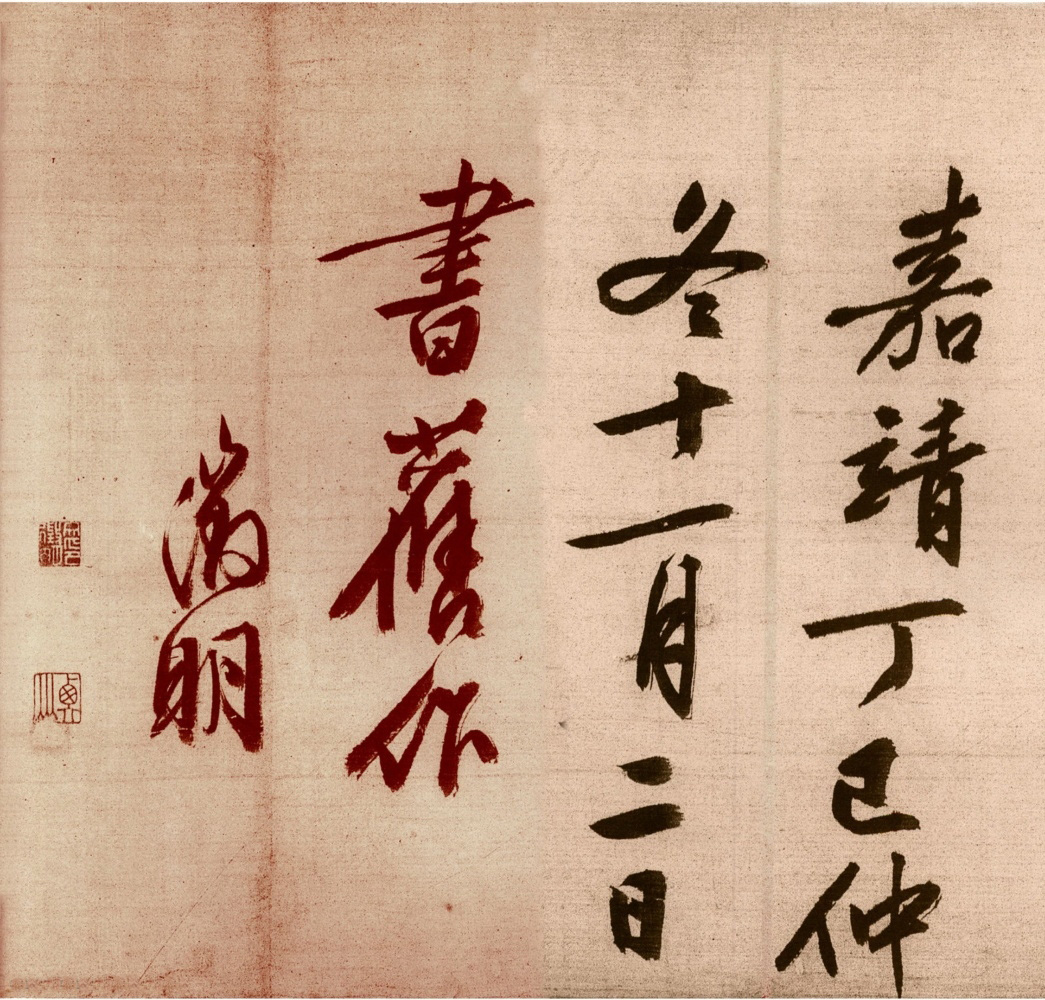 嘉靖丁巳仲
冬十一月二日
書舊作
徵明